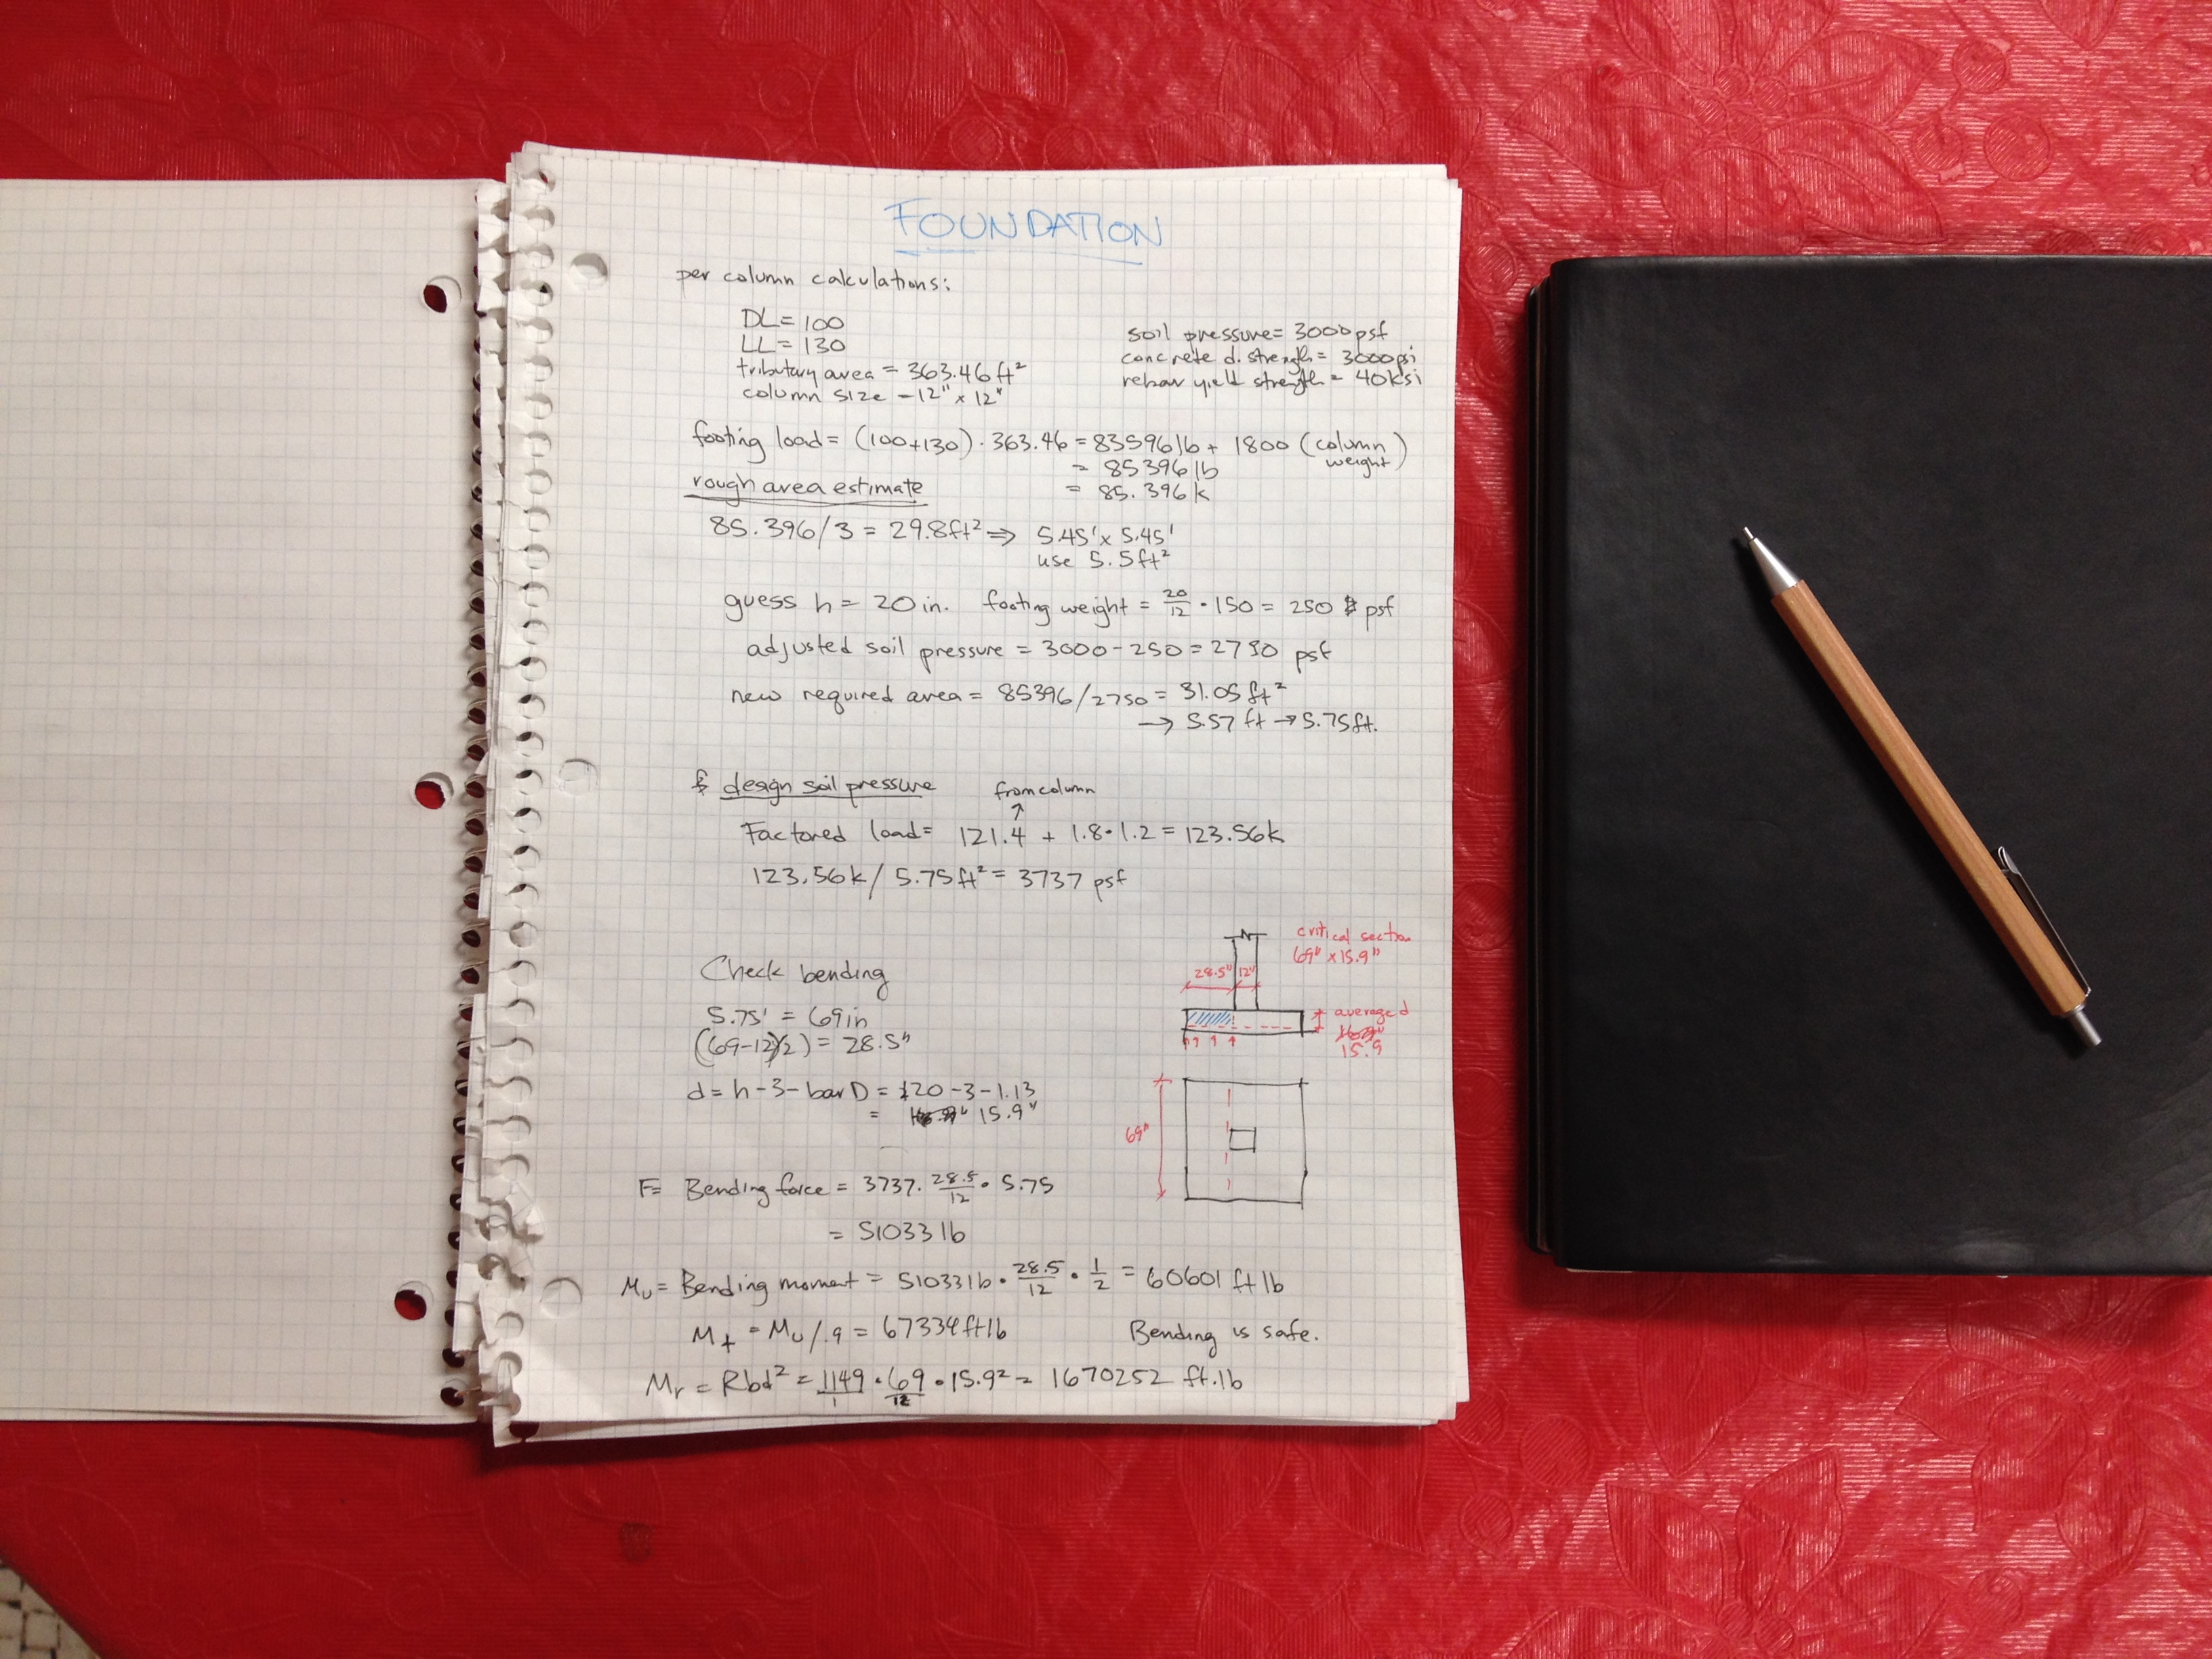 FOUNDATION
per column calculations:
DL = 100
LL = 130
tributary area = 363.46 ft²
column size - 12" x 12"
soil pressure = 3000 psf
concrete d. strength = 3000 psi
rebar yield strength = 40 ksi
footing load = (100+130) · 363.46 = 83596 lb + 1800 (column weight)
= 85396 lb
= 85.396 k
rough area estimate
85.396/3 = 29.8 ft² ⇒ 5.45' x 5.45'
use 5.5 ft²
guess h = 20 in. footing weight = 20/12 · 150 = 250 psf
adjusted soil pressure = 3000 - 250 = 2750 psf
new required area = 85396/2750 = 31.05 ft²
→ 5.57 ft → 5.75 ft.
design soil pressure
from column
Factored load = 121.4 + 1.8 · 1.2 = 123.56k
123.56k / 5.75 ft² = 3737 psf
Check bending
5.75' = 69 in
((69-12)/2) = 28.5"
d = h - 3 - bar D = 20 - 3 - 1.13
= 15.9"
critical section
69" x 15.9"
28.5" 12"
average d
15.9
69"
F = Bending force = 3737 · 28.5/12 · 5.75
= 51033 lb
Mu = Bending moment = 51033 lb · 28.5/12 · 1/2 = 60601 ft lb
Mt = Mu/.9 = 67334 ft lb Bending is safe.
Mr = Rbd² = 1149/1 · 69/12 · 15.9² = 1670252 ft.lb